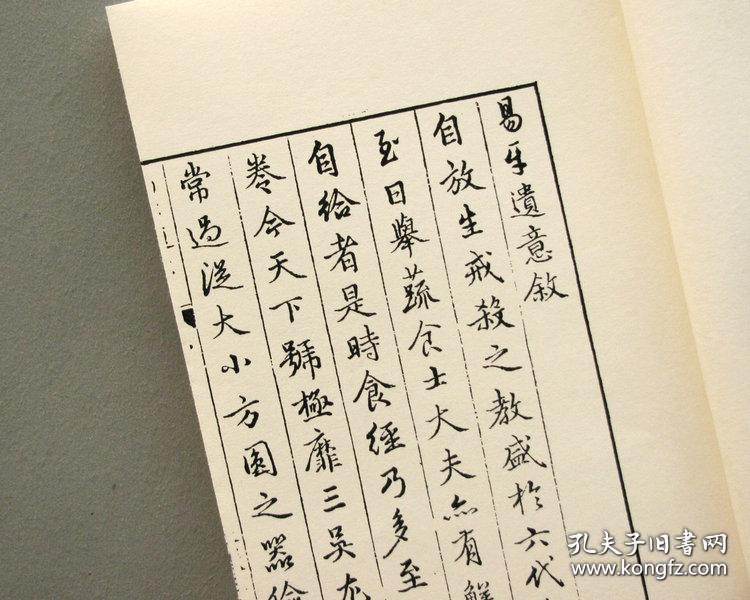 易牙遺意敘
自放生戒殺之教盛於六代
至日舉蔬食士大夫亦有鮮
自給者是時食經乃多至
卷今天下號極靡三吳尤
常過從大小方圓之器儉
孔夫子旧书网
www.kongfz.com